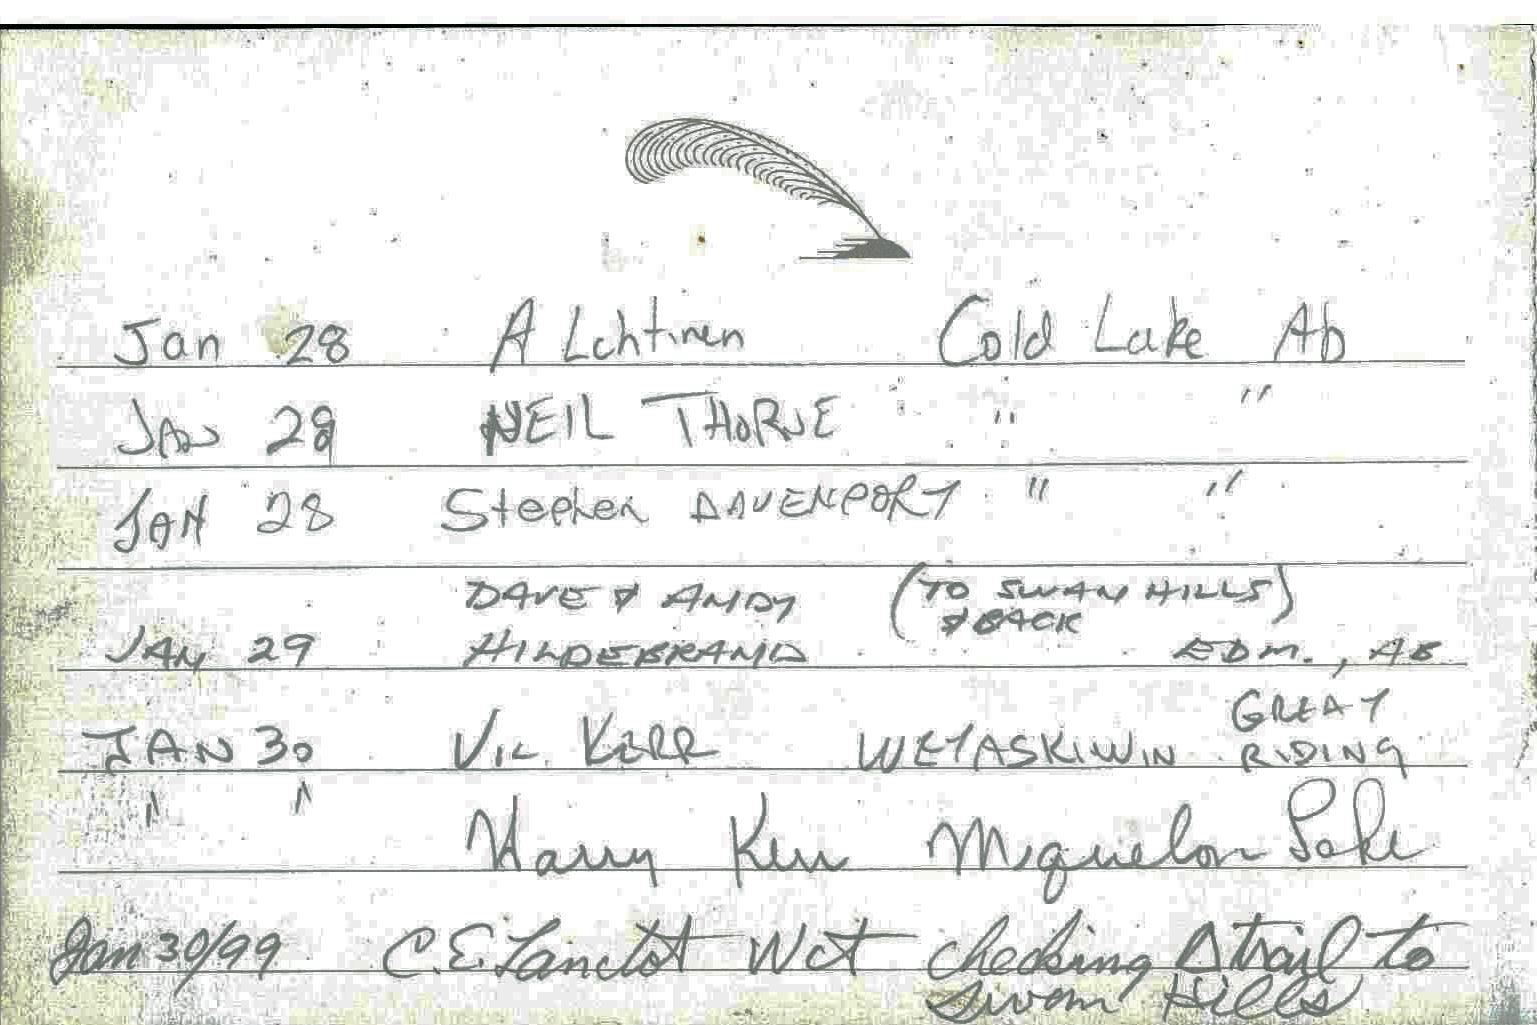 Jan 28 A Lehtinen Cold Lake Ab
JAN 28 NEIL THORNE " "
JAN 28 Stephen DAVENPORT " "
DAVE & ANDY (TO SWAN HILLS)
& BACK
JAN 29 HILDEBRAND EDM., AB
GREAT
JAN 30 VIC. KERR WETASKIWIN RIDING
" " Harry Kerr Miquelon Lake
Jan 30/99 C.E. Lanctot Wct checking trail to
Swan Hills